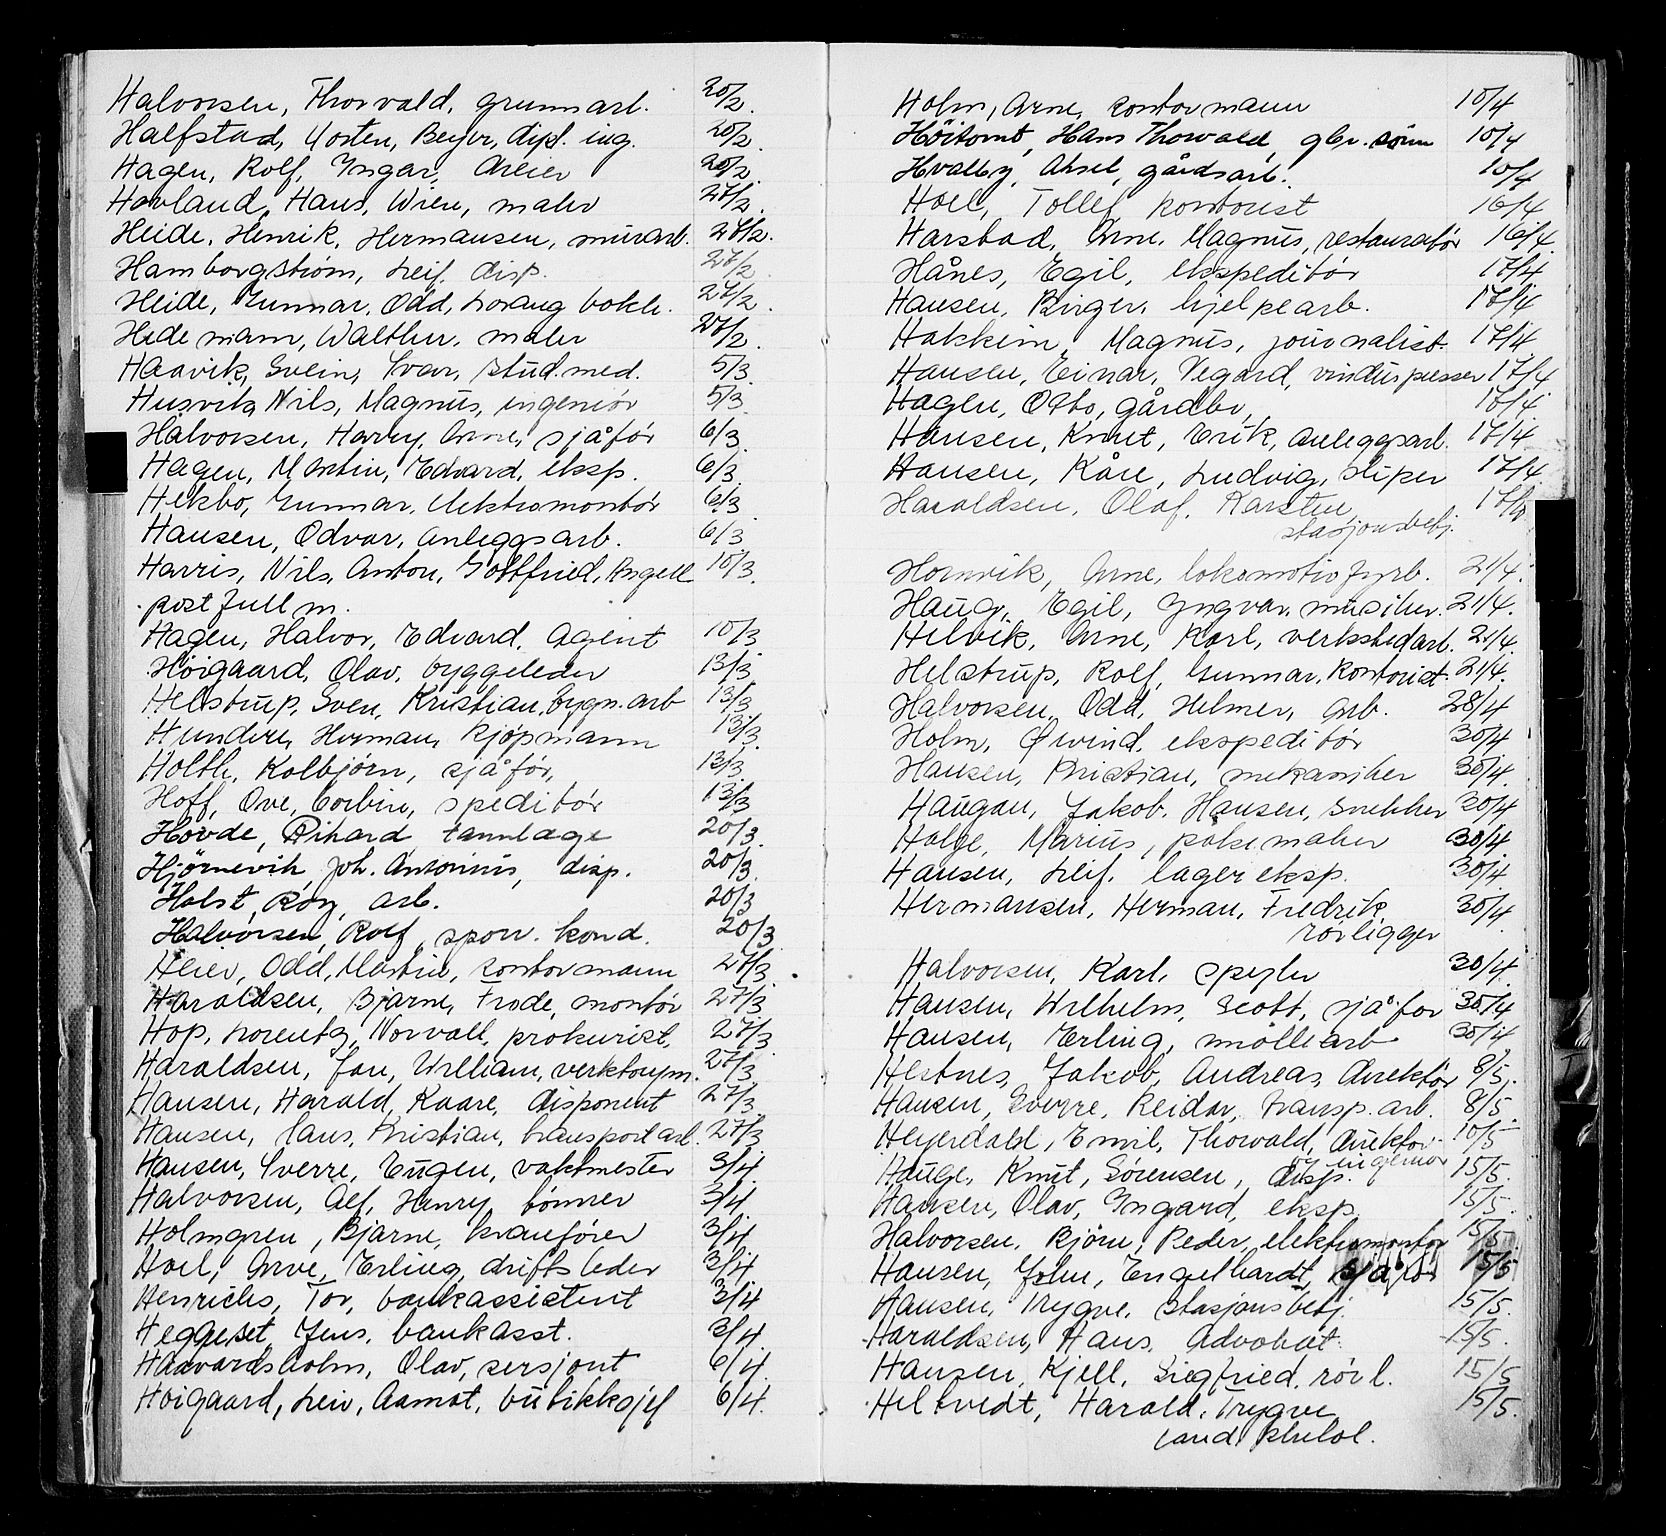 Halvorsen, Thorvald, grunnarb. 20/2.
Halfstad, Mosten, Beyer, dipl. ing. 20/2.
Hagen, Rolf, Yngar, 20/2.
Havland, Hans, Wien, maler 27/2.
Heide, Henrik, Hermansen, murarb. 27/2.
Hamborgstrøm, Leif, disp. 27/2
Heide, Gunnar, Odd, Lorang bokh. 27/2.
Hedemann, Walther, maler 27/2.
Haavik, Svein, Ivar, stud. med. 5/3.
Husvik, Nils, Magnus, ingeniør 5/3
Halvorsen, Harry, Arne, sjåfør 6/3.
Hagen, Martin, Edvard, eksp. 6/3.
Hekbo, Gunnar, elektromontør 6/3.
Hansen, Odvar, anleggsarb. 6/3
Harris, Nils, Anton, Gottfried, Angell 10/3.
postfullm.
Hagen, Halvor, Edvard, agent 10/3
Høigaard, Olav, byggeleder 13/3
Helstrup, Sven, Kristian, bygn.arb 13/3
Hundere, Herman, kjøpmann 13/3.
Holth, Kolbjørn, sjåfør, 13/3
Hoff, Ove, Corbin, speditør 13/3
Hovde, Rikard tannlæge 20/3.
Hjørnevik Joh. Antonius, disp. 20/3.
Holst, Roy, arb. 20/3
Halvorsen, Rolf, sporv. kond. 20/3
Heier, Odd, Martin, kontormann 27/3.
Haraldsen, Bjarne, Frode, montør 27/3
Hop, Lorentz, Norvall, prokurist, 27/3
Haraldsen, Jan, William, verktøym. 27/3
Hansen, Harald, Kaare, disponent 27/3.
Hansen, Hans, Kristian, transportarb. 27/3
Hansen, Sverre, Eugen, vaktmester 3/4.
Halvorsen, Alf, Henry, tønner 3/4.
Holmgren, Bjarne, kranfører 3/4
Hoel, Arve, Erling, driftsleder 3/4
Henrichs, Tor, bankassistent 3/4
Heggeset, Jens, bankasst. 3/4.
Haavardsholm, Olav, sersjant 6/4.
Høigaard, Leiv, Aamot, butikksjef 6/4.
Holm, Arne, kontormann 10/4
Höitomt, Hans Thorvald, gbr. sönn 10/4
Hvalby, Aksel, gårdsarb. 10/4
Hoel, Tollef, kontorist 16/4.
Harstad, Arne, Magnus, restauratør 16/4.
Hånes, Egil, ekspeditør 17/4
Hansen, Birger, hjelpearb. 17/4
Hakkim, Magnus, journalist. 17/4
Hansen, Einar, Vegard, vinduspusser 17/4
Hagen, Otto, gårdbr, 17/4
Hansen, Knut, Erik, anleggsarb. 17/4
Hansen, Kåre, Ludvig, sliper 17/4
Haraldsen, Olaf, Karsten, 17/4
stasjonsbetj.
Hornvik, Arne, lokomotivfyrb. 21/4.
Haug, Egil, Yngvar, musiker. 21/4.
Helvik, Arne, Karl, verkstedarb. 21/4.
Helstrup, Rolf, Gunnar, kontorist. 21/4.
Halvorsen, Odd, Helmer, arb. 28/4
Holm, Øivind, ekspeditør 30/4
Hansen, Kristian, mekaniker 30/4.
Haugan, Jakob, Hansen, snekker 30/4
Holge, Marius, pølsemaker 30/4
Hansen, Leif, lagereksp. 30/4
Hermansen, Herman, Fredrik, 30/4.
rørligger
Halvorsen, Karl, speyler 30/4.
Hansen, Wilhelm, Scott, sjåfør 30/4
Hansen, Erling, møllearb 30/4
Hestnes, Jakob, Andreas, direktør 8/5.
Hansen, Sverre, Reidar, transp. arb. 8/5.
Heyerdahl, Emil, Thorvald, direktør 10/5
og ingeniør
Hauge, Knut, Sørensen, disp. 15/5.
Hansen, Olav, Yngard, eksp. 15/5.
Halvorsen, Bjørn, Peder, elektromontør 15/5
Hansen, John, Engelhardt, sjåfør 15/5
Hansen, Trygve, stasjonsbetj. 15/5.
Haraldsen, Hans, advokat 15/5.
Hansen, Kjell, Siegfried, rørl. 15/5
Heltvedt, Harald, Trygve 15/5.
cand. philol.